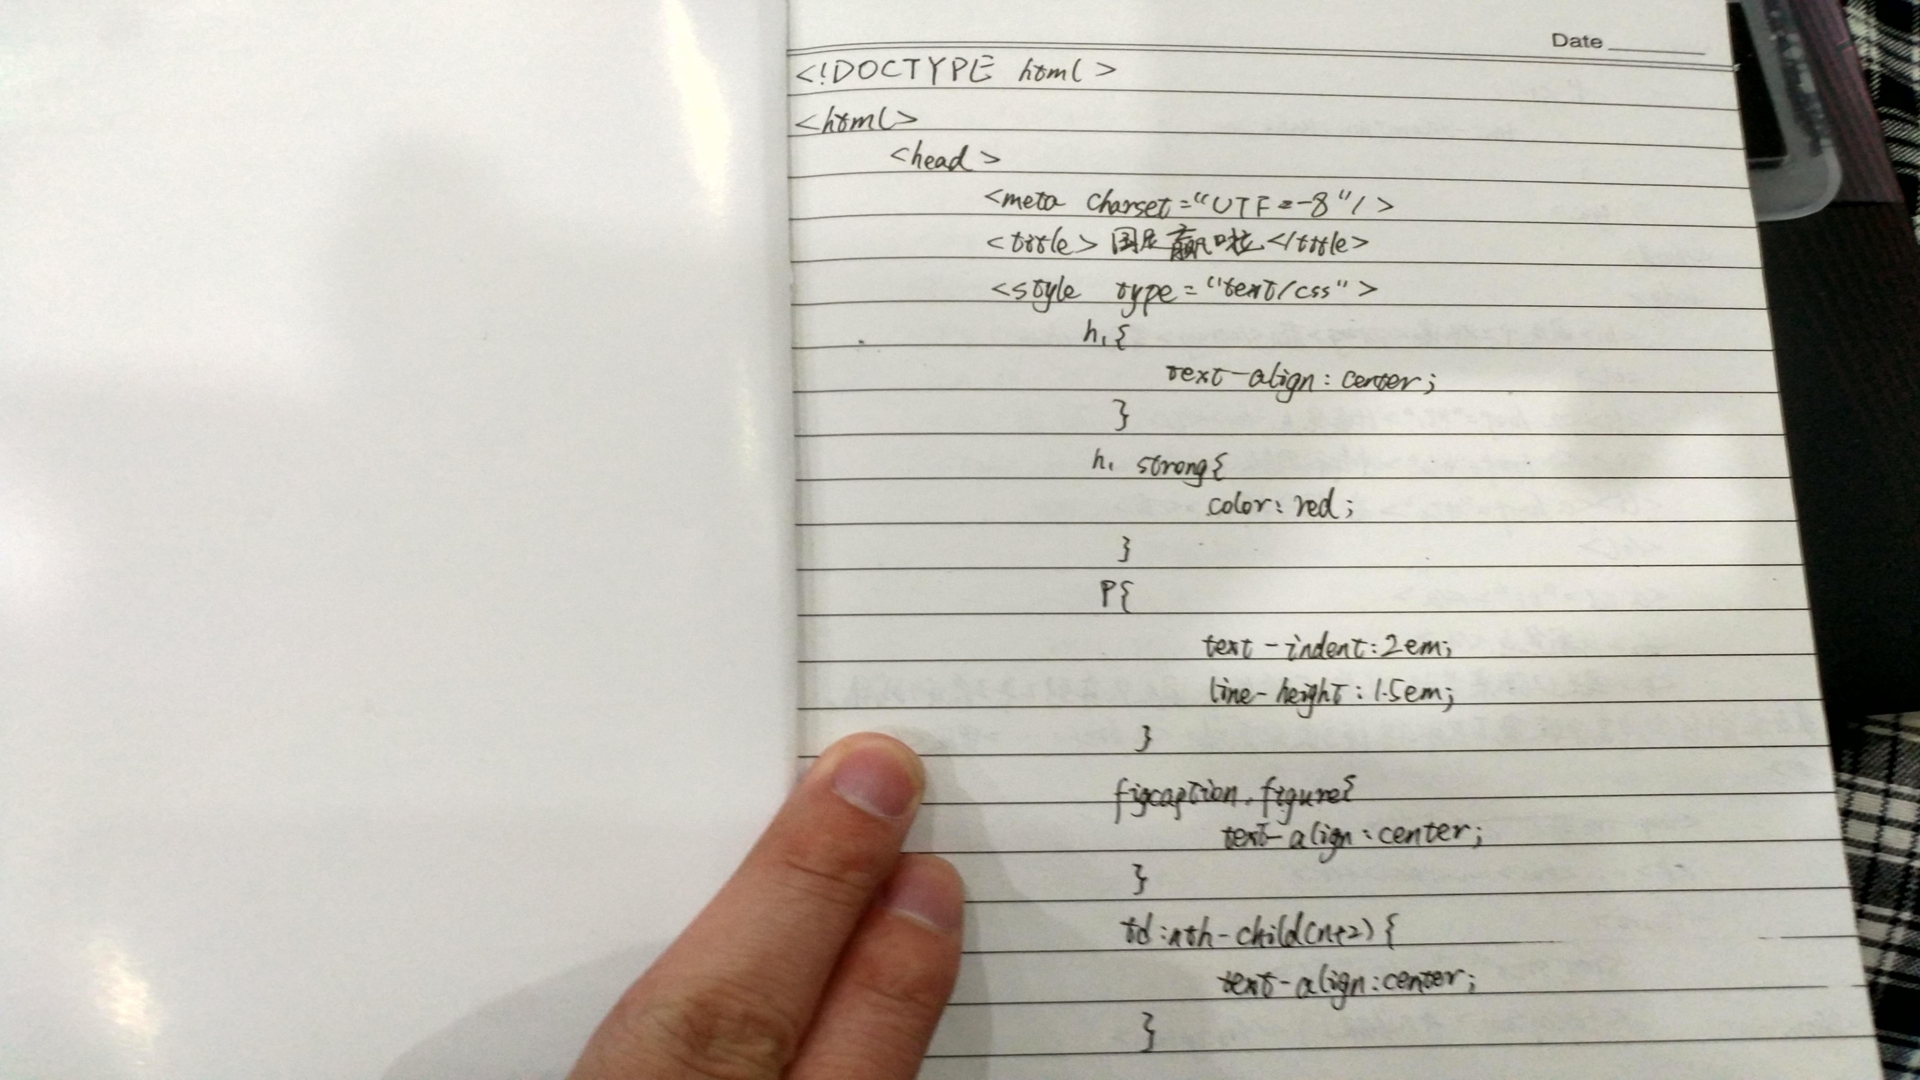 Date
<!DOCTYPE html>
<html>
<head>
<meta charset="UTF=-8"/>
<title>国足赢啦</title>
<style type="text/css">
h1{
text-align:center;
}
h1 strong{
color:red;
}
P{
text-indent:2em;
line-height:1.5em;
}
figcaption,figure{
text-align:center;
}
td:nth-child(n+2){
text-align:center;
}